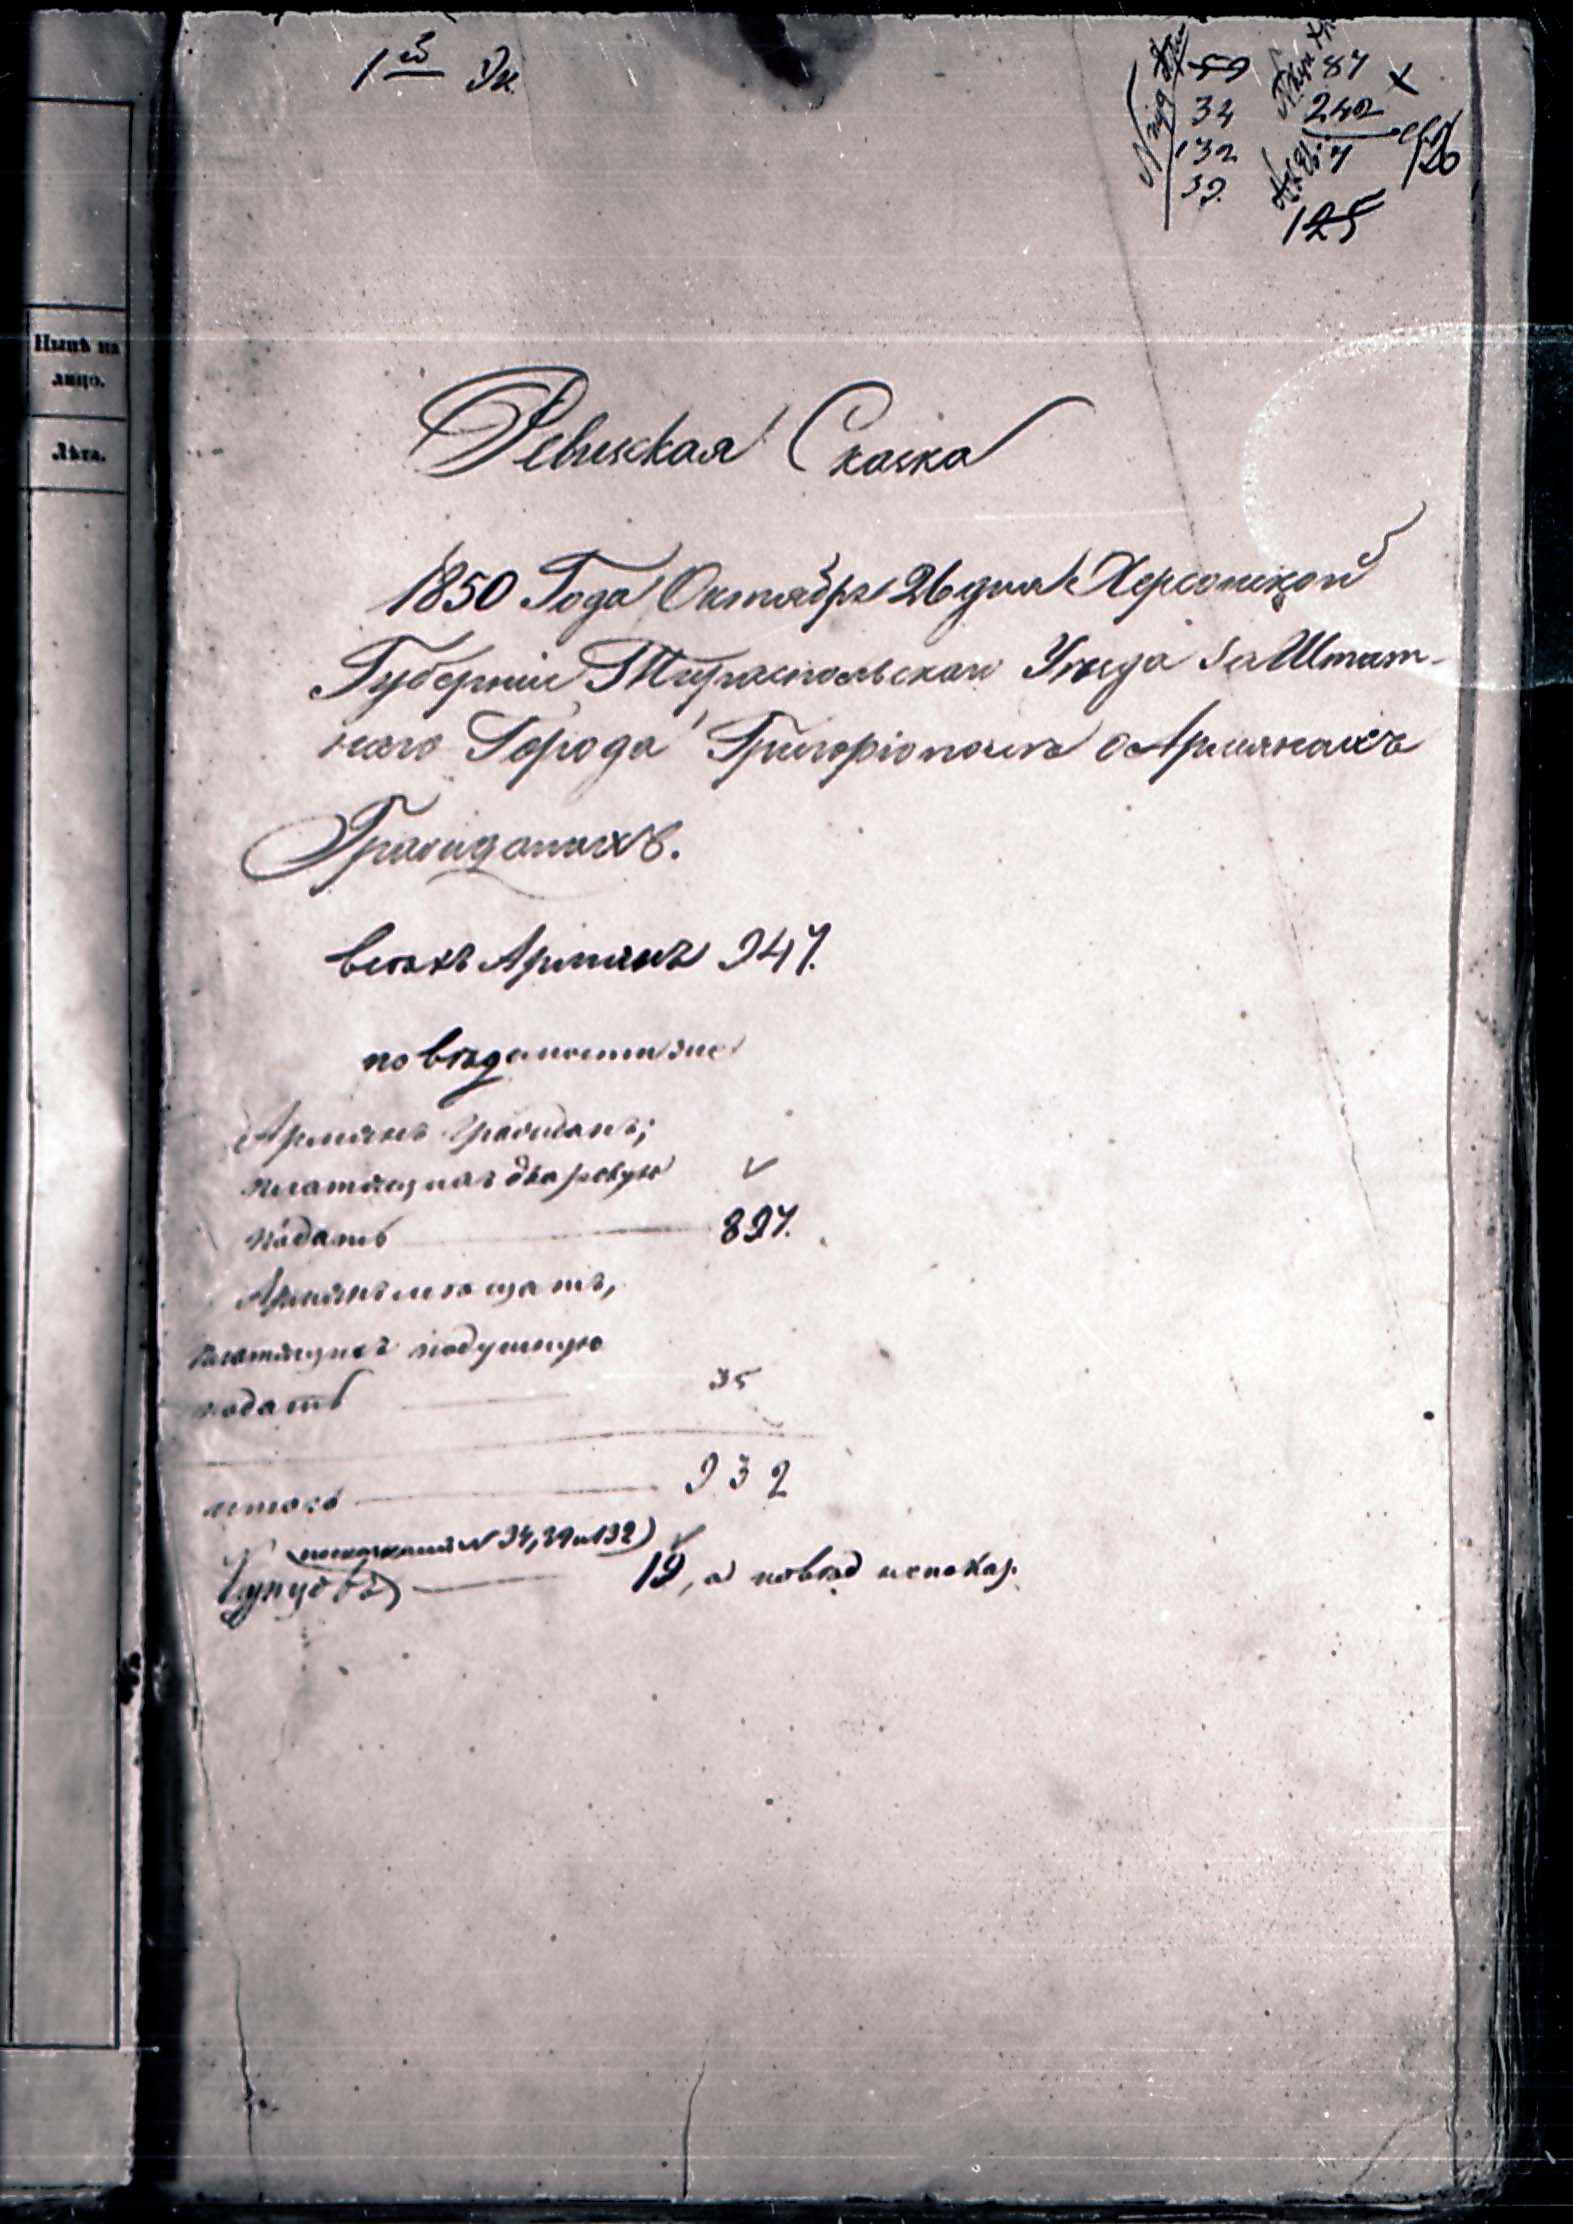 1й Эк.
59
34
132
39.
87
242
7
125
126
Нынѣ на
лицо.
Лѣта.
Ревизская Сказка
1850 Года Октября 26 дня Херсонской
Губерніи Тираспольскаго Уѣзда Заштат-
наго Города Григоріополя о Армянахъ
Гражданахъ.
всѣхъ Армянъ 947.
по вѣдомости же
Армянъ гражданъ,
платящихъ
подать 897.
Армянъ мѣщанъ,
платящихъ подушную
подать 35
итого 932
(по сказкамъ N 34, 39 и 132)
Купцовъ 19, а по вѣд не показ.